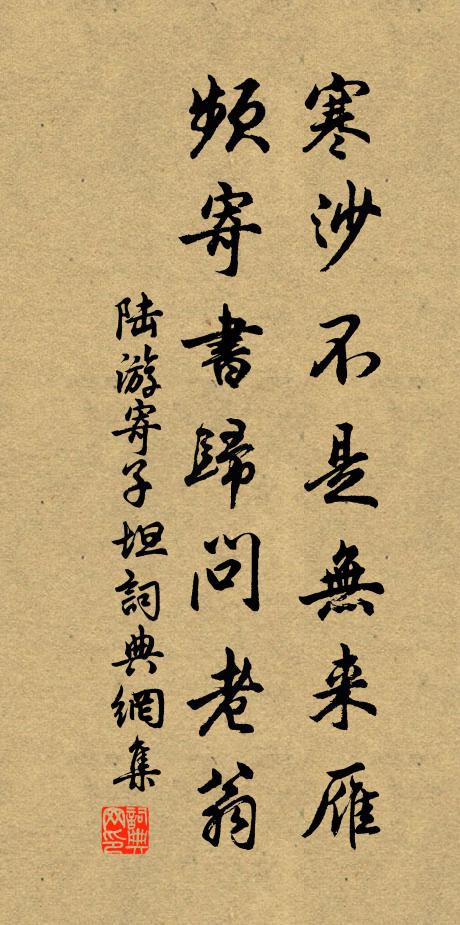 寒沙不是無来雁
頻寄書歸問老翁
陸游寄子坦詞典網集
詞典網印